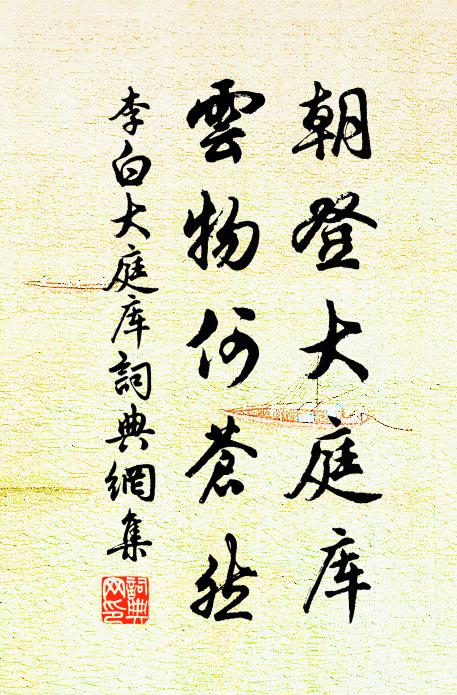 朝登大庭库
雲物何蒼然
李白大庭库詞典網集
詞典网印